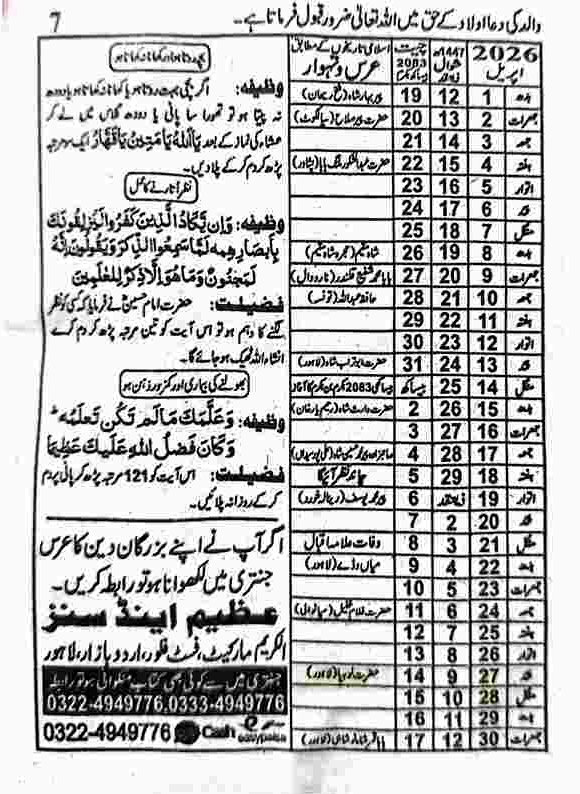 والد کی دعا اولاد کے حق میں اللہ تعالیٰ ضرور قبول فرماتا ہے۔
7
2026 اپریل
1447ھ شوال ذیقعد
چیت 2083 بیساکھ بکرمی
اسلامی تاریخوں کے مطابق عرس و تہوار
بدھ 1 12 19 پیر بہار شاہ
جمعرات 2 13 20
جمعہ 3 14 21
ہفتہ 4 15 22
اتوار 5 16 23
پیر 6 17 24
منگل 7 18 25
بدھ 8 19 26
جمعرات 9 20 27
جمعہ 10 21 28 حافظ عبداللہ
ہفتہ 11 22 29
اتوار 12 23 30
پیر 13 24 31 (لاہور)
منگل 14 25 بیساکھ بیساکھی 2083 بکرمی کا آغاز
بدھ 15 26 2 حضرت وارث شاہ
جمعرات 16 27 3
جمعہ 17 28 4
ہفتہ 18 29 5 چاند نظر آئیگا
اتوار 19 ذیقعد 6 پیر محمد یوسف
پیر 20 2 7
منگل 21 3 8 وفات علامہ اقبال
بدھ 22 4 9 میاں وڈے (لاہور)
جمعرات 23 5 10
جمعہ 24 6 11
ہفتہ 25 7 12
اتوار 26 8 13
پیر 27 9 14 (لاہور)
منگل 28 10 15
بدھ 29 11 16
جمعرات 30 12 17 (لاہور)
وظیفہ: اگر بچی بہت روتا ہو یا کھانا نہ کھاتا ہو یا دودھ
نہ پیتا ہو تو تھوڑا سا پانی یا دودھ گلاس میں لے کر
عشاء کی نماز کے بعد یَااَللّٰہُ یَامَتِیْنُ یَاقَھَّارُ ایک سو مرتبہ
پڑھ کر دم کر کے پلا دیں۔
نظر اتارنے کا عمل
وظیفہ: وَاِنْ یَّکَادُ الَّذِیْنَ کَفَرُوْا لَیُزْلِقُوْنَکَ
بِاَبْصَارِھِمْ لَمَّا سَمِعُوا الذِّکْرَ وَیَقُوْلُوْنَ اِنَّہٗ
لَمَجْنُوْنٌ وَمَا ھُوَ اِلَّا ذِکْرٌ لِّلْعٰلَمِیْنَ
فضیلت: حضرت امام حسینؓ نے فرمایا کہ کسی کو نظر
لگنے کا وہم ہو تو اس آیت کو تین مرتبہ پڑھ کر دم کرے
انشاء اللہ ٹھیک ہو جائے گا۔
بھولنے کی بیماری اور کمزور ذہن ہو
وظیفہ: وَعَلَّمَکَ مَالَمْ تَکُنْ تَعْلَمُ
وَکَانَ فَضْلُ اللہِ عَلَیْکَ عَظِیْمًا
فضیلت: اس آیت کو 121 مرتبہ پڑھ کر پانی پر دم
کر کے روزانہ پلائیں۔
اگر آپ نے اپنے بزرگان دین کا عرس
جنتری میں لکھوانا ہو تو رابطہ کریں۔
عظیم اینڈ سنز
الکریم مارکیٹ، فسٹ فلور، اردو بازار، لاہور
جنتری میں سے کوئی بھی کتاب منگوانی ہو تو رابطہ
0322-4949776,0333-4949776
0322-4949776 Cash easypaisa